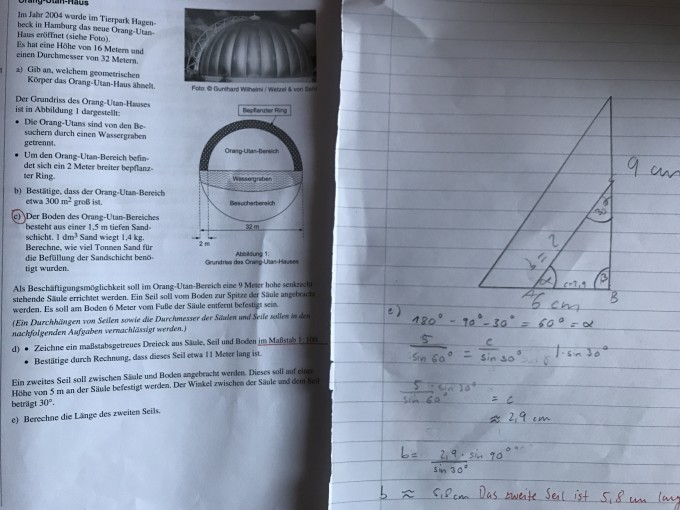 Orang-Utan-Haus
Im Jahr 2004 wurde im Tierpark Hagen-
beck in Hamburg das neue Orang-Utan-
Haus eröffnet (siehe Foto).
Es hat eine Höhe von 16 Metern und
einen Durchmesser von 32 Metern.
a) Gib an, welchem geometrischen
Körper das Orang-Utan-Haus ähnelt.
Foto: © Gunthard Wilhelmi / Wetzel & von
Der Grundriss des Orang-Utan-Hauses
ist in Abbildung 1 dargestellt:
• Die Orang-Utans sind von den Be-
suchern durch einen Wassergraben
getrennt.
• Um den Orang-Utan-Bereich befin-
det sich ein 2 Meter breiter bepflanz-
ter Ring.
b) Bestätige, dass der Orang-Utan-Bereich
etwa 300 m² groß ist.
c) Der Boden des Orang-Utan-Bereiches
besteht aus einer 1,5 m tiefen Sand-
schicht. 1 dm³ Sand wiegt 1,4 kg.
Berechne, wie viel Tonnen Sand für
die Befüllung der Sandschicht benö-
tigt wurden.
Bepflanzter Ring
Orang-Utan-Bereich
Wassergraben
Besucherbereich
32 m
2 m
Abbildung 1:
Grundriss des Orang-Utan-Hauses
Als Beschäftigungsmöglichkeit soll im Orang-Utan-Bereich eine 9 Meter hohe senkrecht
stehende Säule errichtet werden. Ein Seil soll vom Boden zur Spitze der Säule angebracht
werden. Es soll am Boden 6 Meter vom Fuße der Säule entfernt befestigt sein.
(Ein Durchhängen von Seilen sowie die Durchmesser der Säulen und Seile sollen in den
nachfolgenden Aufgaben vernachlässigt werden.)
d) • Zeichne ein maßstabsgetreues Dreieck aus Säule, Seil und Boden im Maßstab 1:100.
• Bestätige durch Rechnung, dass dieses Seil etwa 11 Meter lang ist.
Ein zweites Seil soll zwischen Säule und Boden angebracht werden. Dieses soll auf einer
Höhe von 5 m an der Säule befestigt werden. Der Winkel zwischen der Säule und dem Seil
beträgt 30°.
e) Berechne die Länge des zweiten Seils.
9 cm
γ
30
α
β
A
B
6 cm
e)
180° - 90° - 30° = 60° = α
5 / sin 60° = c / sin 30° | · sin 30°
5 · sin 30° / sin 60° = c
≈ 2,9 cm
b = 2,9 · sin 90° / sin 30°
b ≈ 5,8 cm Das zweite Seil ist 5,8 cm lang